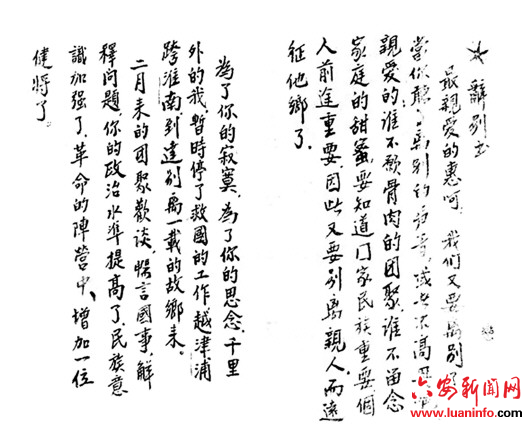 辭別書
最親愛的惠呵，我们又要離別
當你聽了離別的
親愛的，誰不愿骨肉的团聚，誰不留念
家庭的甜蜜，要知道
家民族重要個
人前途重要，因此又要別离親人，而遠
征他鄉了。
為了你的寂寞，為了你的思念，千里
外的我，暫時停了救國的工作越津浦
跨淮南到達別离一載的故鄉来。
二月来的团聚歡談，
言國事，解
釋問題，你的政治水準提高了，民族意
識加强了，革命的陣營中，增加一位
健將了。
六安新闻网
www.luaninfo.com